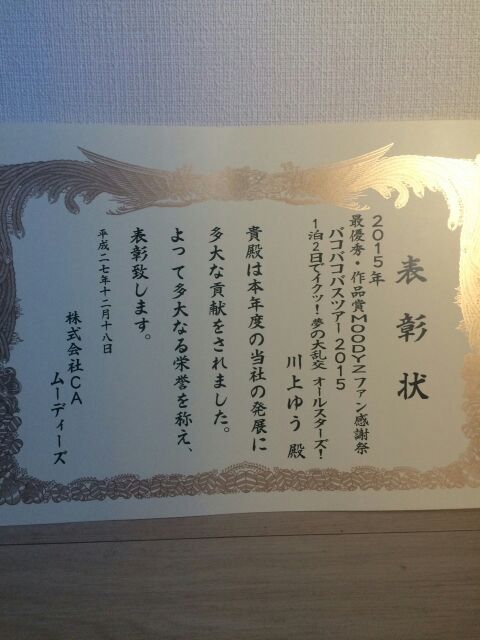 表彰状
2015年
最優秀・作品賞MOODYZファン感謝祭
バコバコバスツアー2015
1泊2日でイクッ!夢の大乱交 オールスターズ!
川上ゆう 殿
貴殿は本年度の当社の発展に
多大な貢献をされました。
よって多大なる栄誉を称え、
表彰致します。
平成二七年十二月十八日
株式会社CA
ムーディーズ